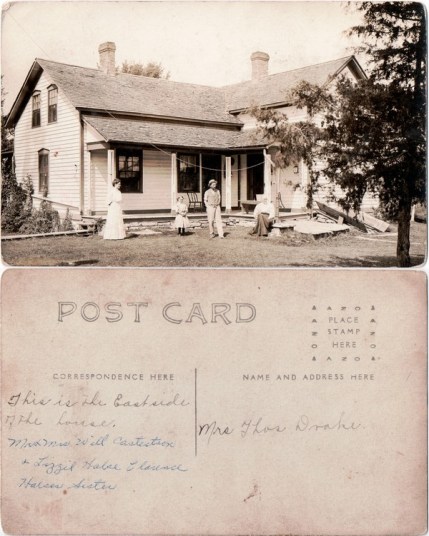 POST CARD
AZO
PLACE
STAMP
HERE
AZO
CORRESPONDENCE HERE
NAME AND ADDRESS HERE
This is the East side
of the house.
Mrs Thos Drake.
Mr & Mrs Will
& Lizzie
Sister